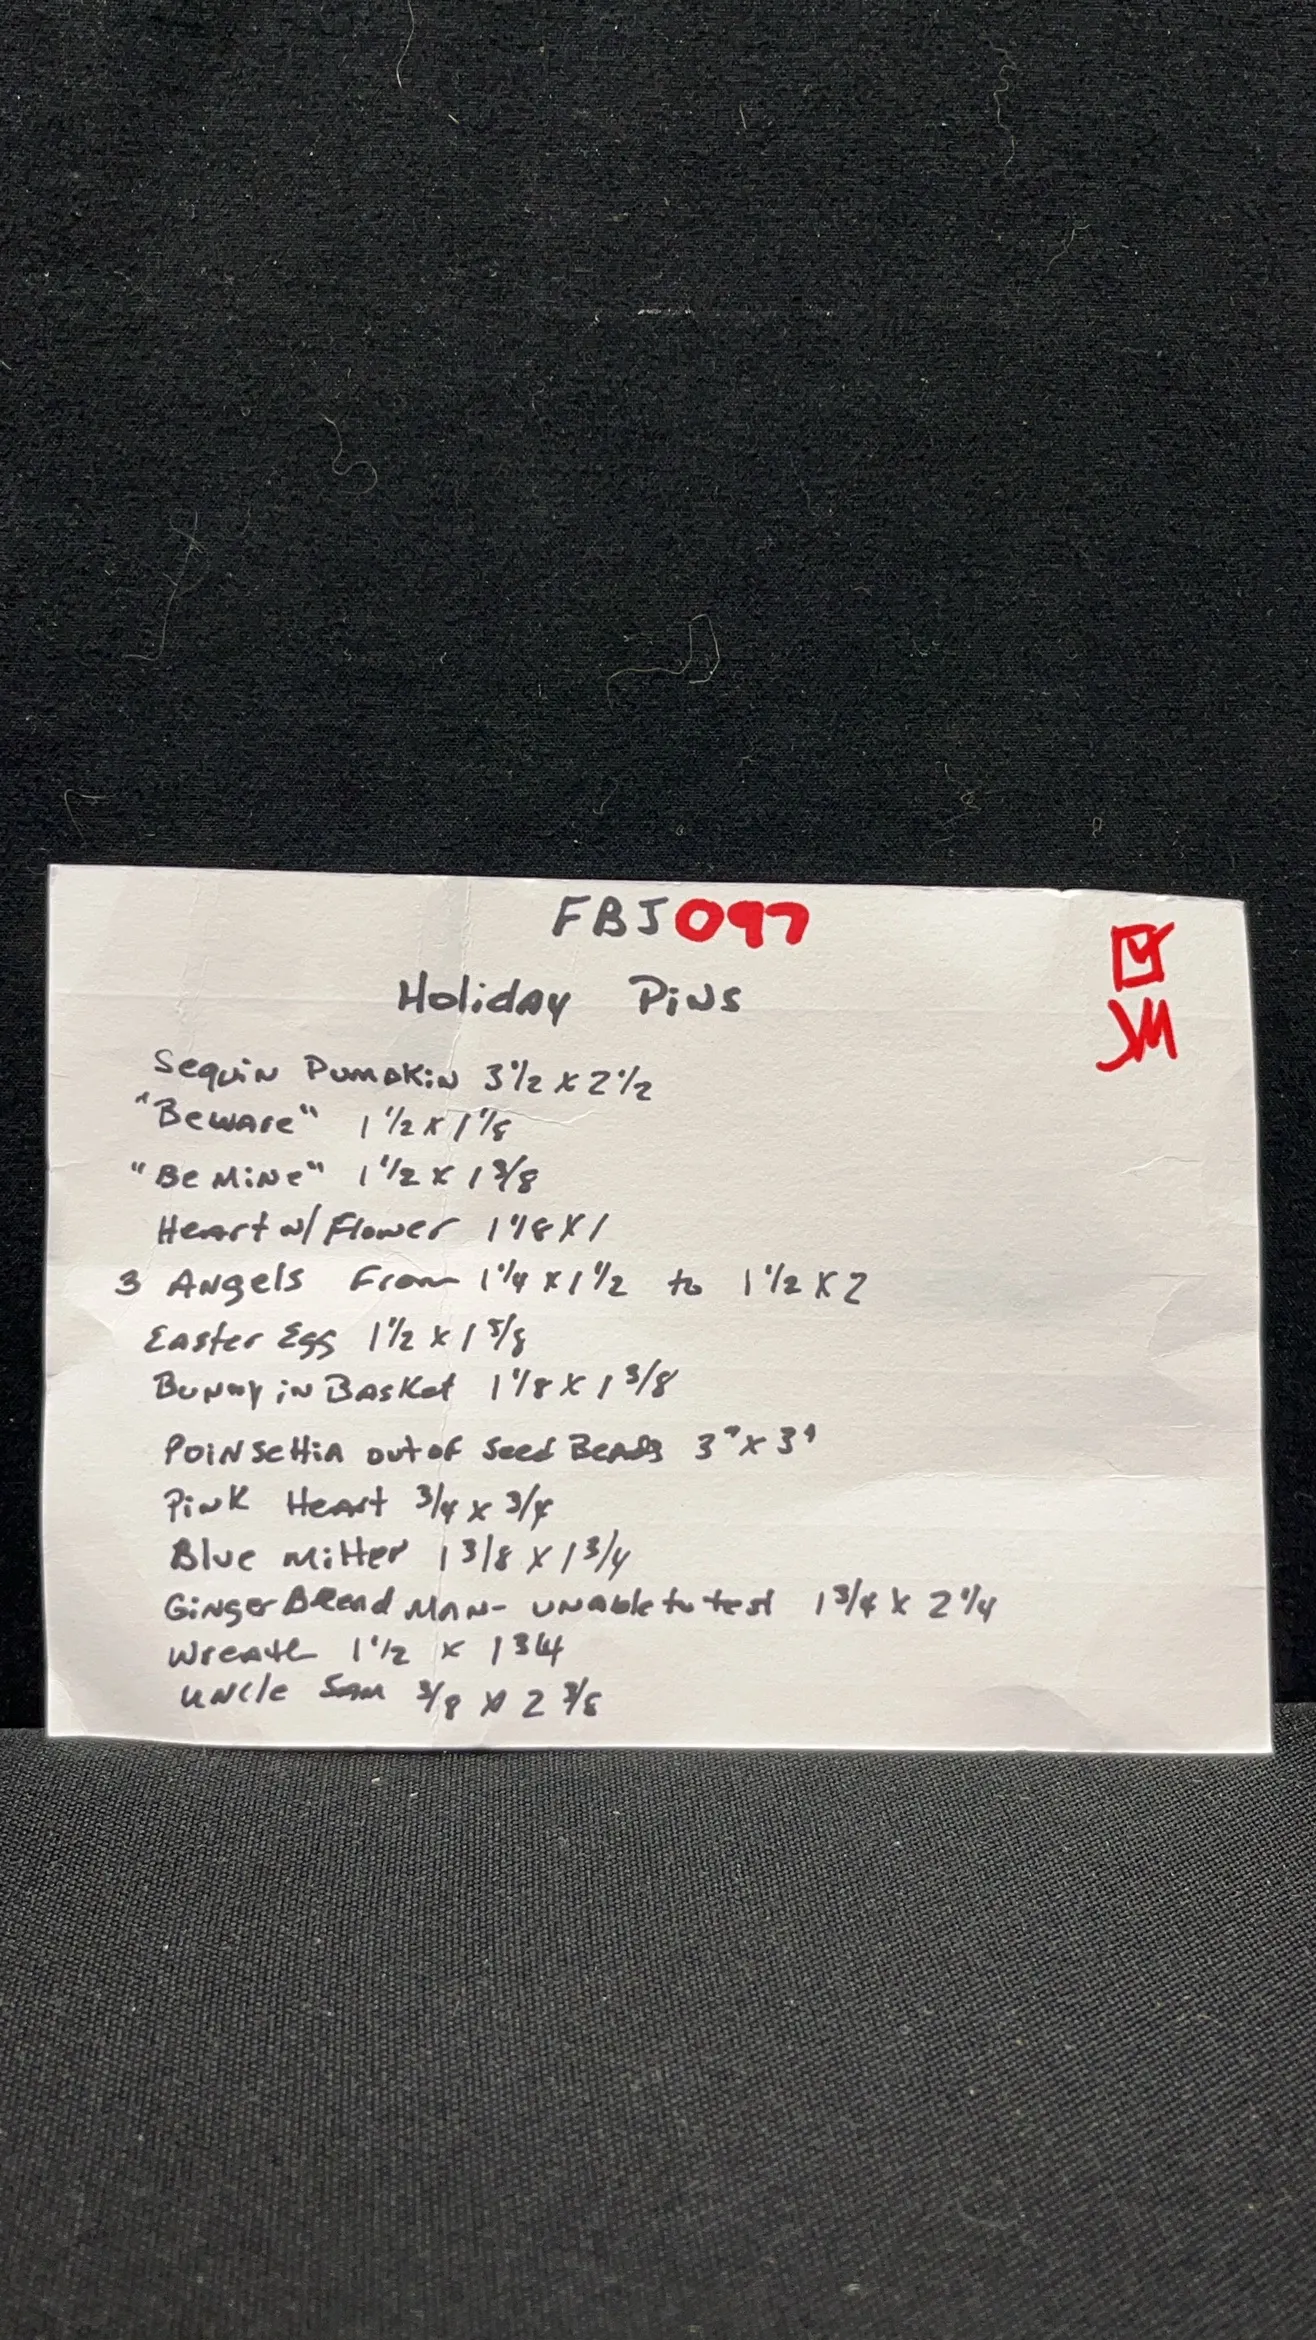 FBJ097
JM
Holiday Pins
Sequin Pumpkin 3 1/2 x 2 1/2
"Beware" 1 1/2 x 1 1/8
"Be Mine" 1 1/2 x 1 3/8
Heart w/ Flower 1 1/8 x 1
3 Angels From 1 1/4 x 1 1/2 to 1 1/2 x 2
Easter Egg 1 1/2 x 1 5/8
Bunny in Basket 1 1/8 x 1 3/8
Poinsettia out of Seed Beads 3" x 3"
Pink Heart 3/4 x 3/4
Blue Mitten 1 3/8 x 1 3/4
Ginger Bread Man - unable to test 1 3/4 x 2 1/4
Wreath 1 1/2 x 1 3/4
Uncle Sam 3/8 x 2 3/8